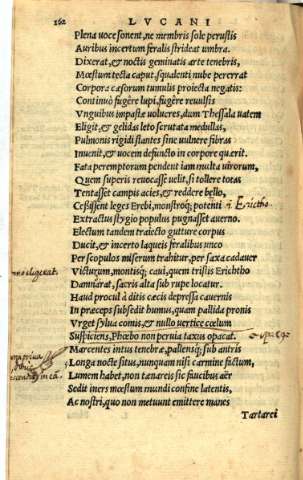 162 LVCANI
Plena uoce sonent, ne membris sole perustis
Auribus incertum feralis strideat umbra.
Dixerat, & noctis geminatis arte tenebris,
Mœstum tecta caput, squalenti nube pererrat
Corpora cæsorum tumulis proiecta negatis:
Continuò fugêre lupi, fugêre reuulsis
Vnguibus impastæ uolucres, dum Thessala uatem
Eligit, & gelidas leto scrutata medullas,
Pulmonis rigidi stantes sine uulnere fibras
Inuenit, & uocem defuncto in corpore quærit.
Fata peremptorum pendent iam multa uirorum,
Quem superis reuocasse uelit, si tollere totas
Tentasset campis acies, & reddere bello,
Cessissent leges Erebi, monstroq; potenti
Erictho
Extractus stygio populus pugnasset auerno.
Electum tandem traiecto gutture corpus
Ducit, & incerto laqueis feralibus unco
Per scopulos miserum trahitur, per saxa cadauer
Victurum, montisq; caui, quem tristis Erichtho
Damnarat, sacris alta sub rupe locatur.
Haud procul à ditis cæcis depressa cauernis
In præceps subsedit humus, quam pallida pronis
Vrget sylua comis, & nullo uertice cœlum
Suspiciens, Phœbo non peruia taxus opacat.
Marcentes intus tenebræ, pallensq; sub antris
Longa nocte situs, nunquam nisi carmine factum,
Lumen habet, non tænareis sic faucibus aër
Sedit iners mœstum mundi confine latentis,
Ac nostri, quo non metuunt emittere manes
Tartarei